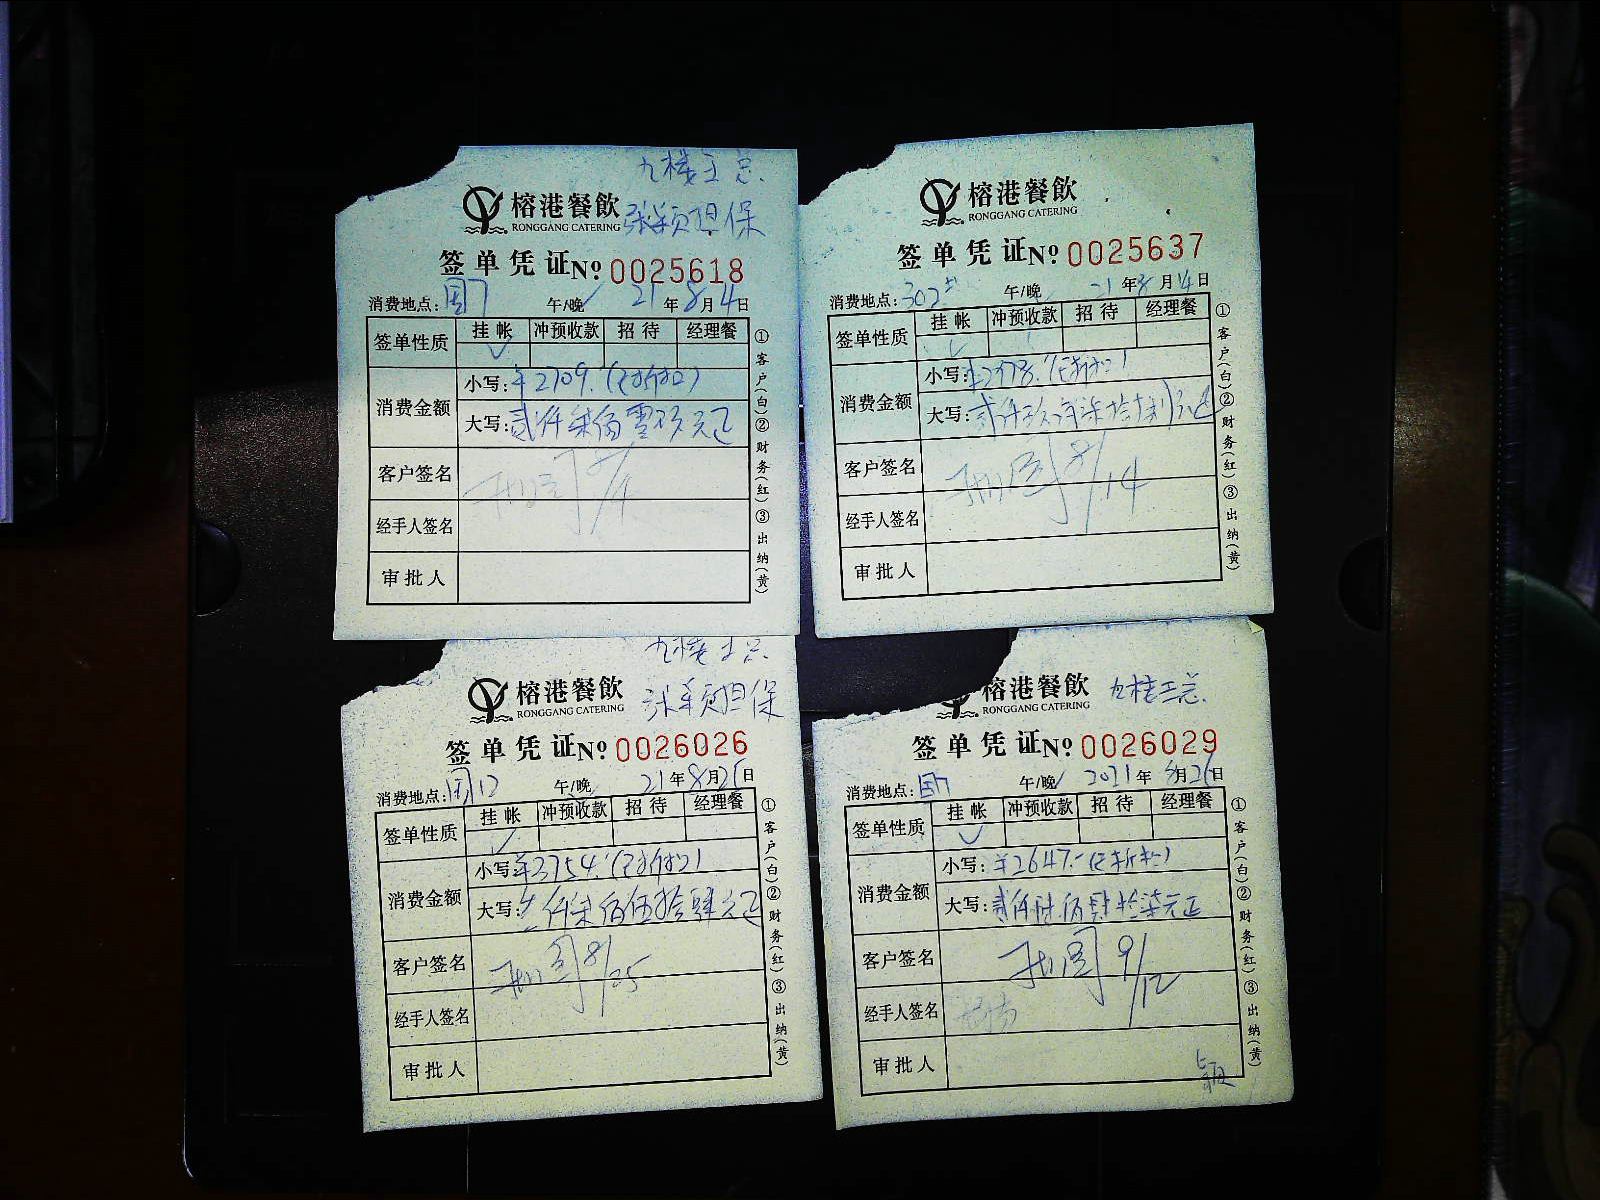 九楼王总.
榕港餐飲
RONGGANG CATERING
张美颜担保
签单凭证 Nº 0025618
消费地点: 国7 午/晚 21年8月4日
签单性质 挂帐 冲预收款 招待 经理餐
✓
消费金额
小写: ¥2709.(已折扣)
大写: 贰仟柒佰零玖元正
客户签名 8/4
经手人签名
审批人
①客户(白)②财务(红)③出纳(黄)
榕港餐飲
RONGGANG CATERING
签单凭证 Nº 0025637
消费地点: 302 午/晚 21年8月14日
签单性质 挂帐 冲预收款 招待 经理餐
✓
消费金额
小写: (已折扣)
大写: 贰仟玖佰柒拾捌元正
客户签名 8/14
经手人签名
审批人
①客户(白)②财务(红)③出纳(黄)
九楼王总.
榕港餐飲
RONGGANG CATERING
担保
签单凭证 Nº 0026026
消费地点: 国12 午/晚 21年8月25日
签单性质 挂帐 冲预收款 招待 经理餐
✓
消费金额
小写: ¥3754.(已折扣)
大写: 叁仟柒佰伍拾肆元正
客户签名 8/25
经手人签名
审批人
①客户(白)②财务(红)③出纳(黄)
榕港餐飲
RONGGANG CATERING
九楼王总.
签单凭证 Nº 0026029
消费地点: 国7 午/晚 2021年8月26日
签单性质 挂帐 冲预收款 招待 经理餐
✓
消费金额
小写: ¥2647.-(已折扣)
大写: 贰仟陆佰肆拾柒元正
客户签名 9/12
经手人签名
审批人
①客户(白)②财务(红)③出纳(黄)